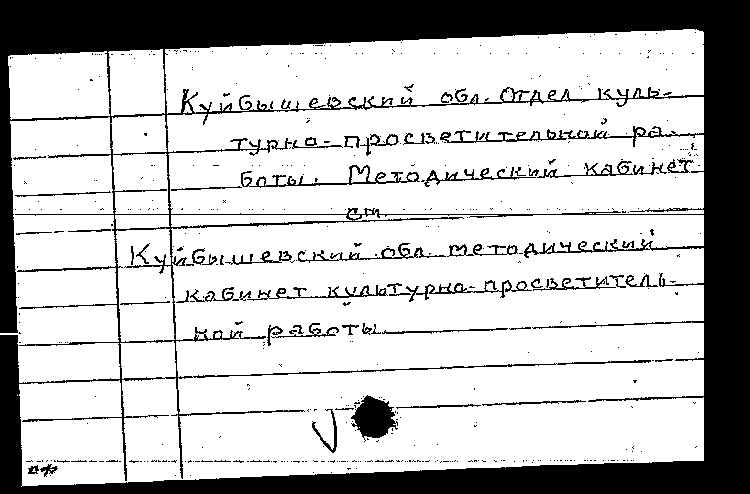 Куйбышевский обл. отдел куль-
турно-просветительной ра-
боты. Методический кабинет
см.
Куйбышевский обл. методический
кабинет культурно-просветитель-
ной работы.